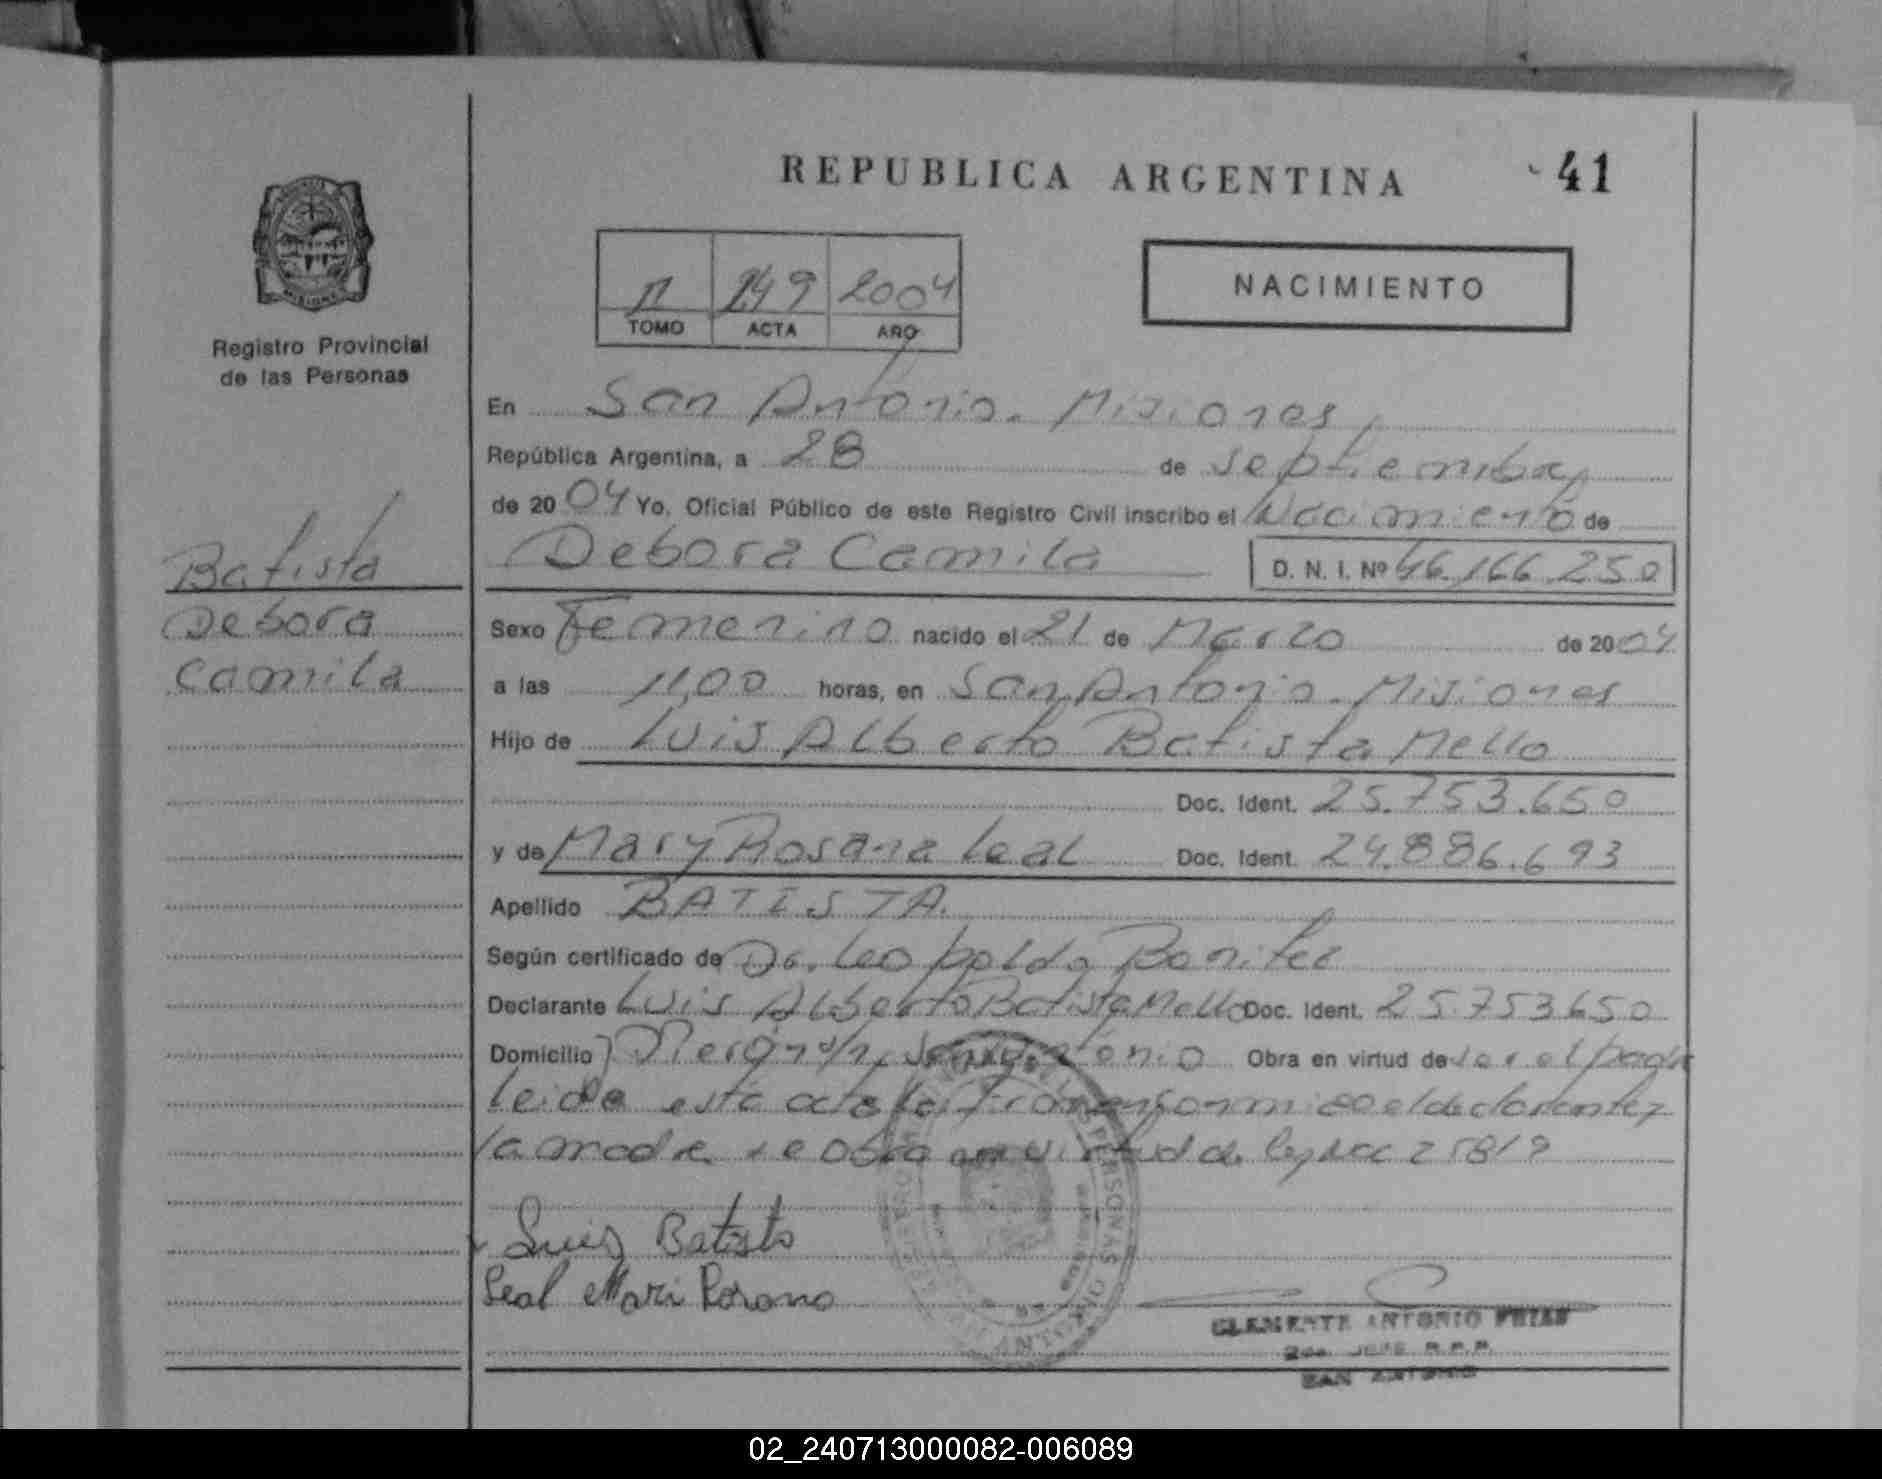 REPUBLICA ARGENTINA
41
Registro Provincial
de las Personas
II 249 2004
TOMO ACTA AÑO
NACIMIENTO
En San Antonio. Misiones,
República Argentina, a 28 de septiembre,
de 2004 Yo, Oficial Público de este Registro Civil inscribo el Nacimiento de
Debora Camila
D. N. I. Nº 46.166.250
Batista
Debora
Camila
Sexo Femenino nacido el 21 de Marzo de 2004
a las 11,00 horas, en San Antonio. Misiones
Hijo de Luis Alberto Batista Mello
Doc. Ident. 25.753.650
y de Mary Rosana Leal Doc. Ident. 24.886.693
Apellido BATISTA.
Según certificado de Dr. Leopoldo Benitez
Declarante Luis Alberto Batista Mello Doc. Ident. 25.753650
Domicilio s/n, San Antonio Obra en virtud de ser el padre
leida esta acta el declarante y
la madre se obra en virtud de ley Nac 25819
Luis Batista
Leal Mari Rosana
CLEMENTE ANTONIO FRIAS
2do JEFE R.P.P.
SAN ANTONIO
02_240713000082-006089